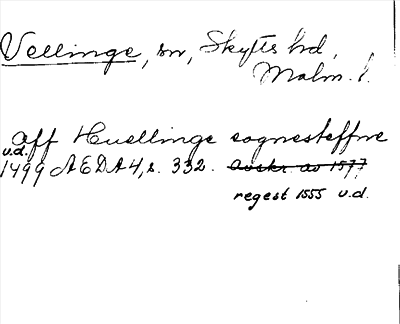 Vellinge, sn, Skytts hd,
Malm. l.
aff Huellinge sognesteffne
u.d.
1499 ÆDA 4, s. 332. Avskr. av 1577.
regest 1555 u.d.